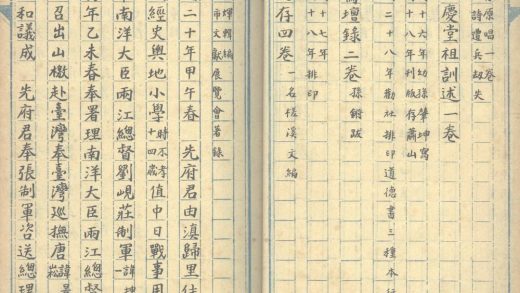 原唱一卷
詩遺兵劫失
慶堂祖訓述一卷
十六年幼孫肇坤寫
十八年刊版存蕭山
二十八年勸社排印道德書三種本
壇錄二卷 孫鏘跋
十七年
十八年排印
存四卷 一名槎溪文編
輝輯編
市文獻展覽會著錄
二十年甲午春 先府君由滇歸里
經史輿地小學 時不孝十四歲 值中日戰事
南洋大臣兩江總督劉峴莊制軍 諱坤一
年乙未春奉署理南洋大臣兩江總督
召出山檄赴臺灣奉臺灣巡撫唐 諱景崧
和議成 先府君奉張制軍咨送總理